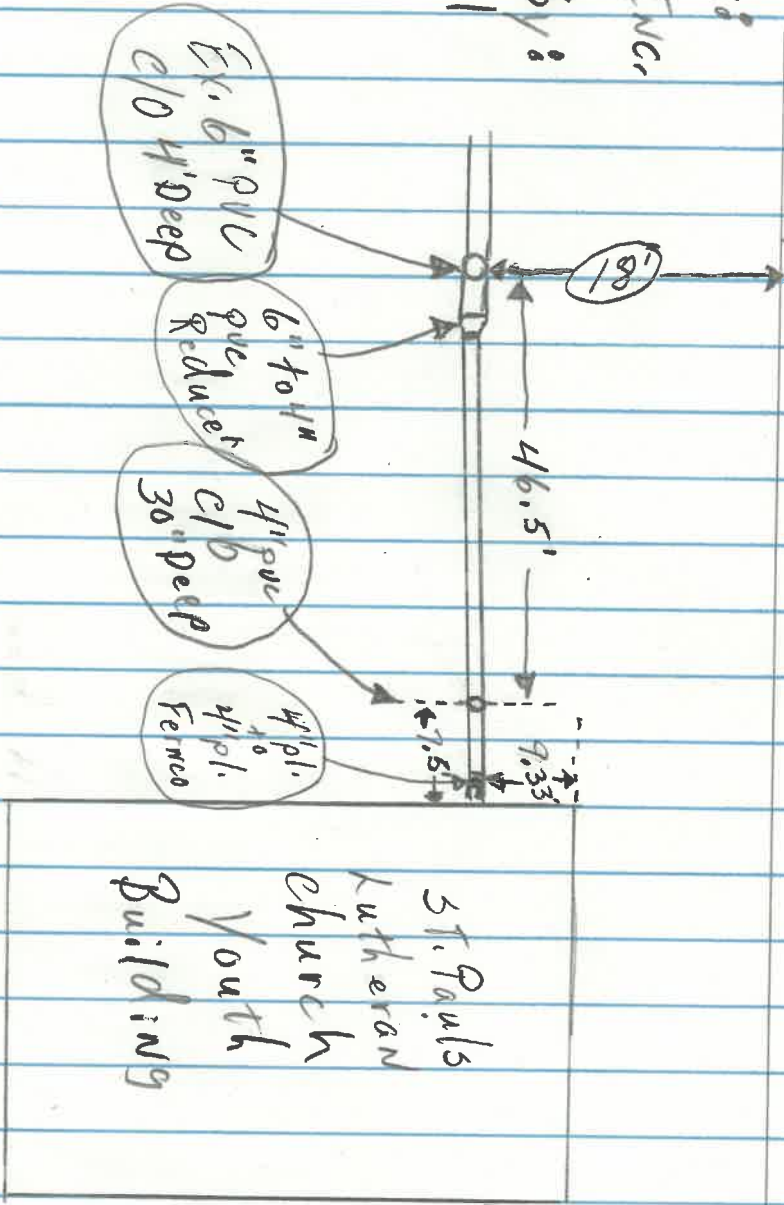 INC.
Ex. 6" PVC
C/O 4' Deep
6" to 4"
PVC
Reducer
4" PVC
C/O
30" Deep
4" pl.
to
4" pl.
Fernco
18'
46.5'
7.5'
9.33'
ST. Pauls
Lutheran
Church
Youth
Building